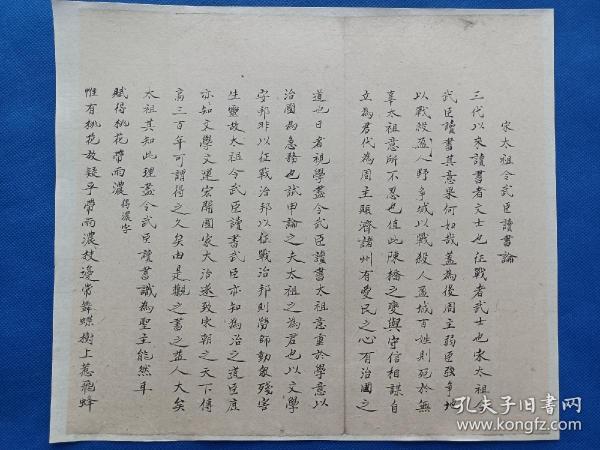 宋太祖令武臣讀書論
三代以來讀書者文士也征戰者武士也宋太祖令
武臣讀書其意果何如哉蓋為後周主弱臣强爭地
以戰殺盈人野爭城以戰殺人盈城百姓則死於無
辜太祖意所不忍也值此陳橋之變與守信相謀自
立為君代為周主賑濟諸州有愛民之心有治國之
道也日者視學盡令武臣讀書太祖意重於學意以
治國為急務也試申論之夫太祖之為君也以文學
守邦非以征戰治邦以征戰治邦則勞師動衆殘害
生靈故太祖令武臣讀書武臣亦知為治之道臣庶
亦知文學文運宏開國家大治遂致宋朝之天下傳
高三百年可謂得之久矣由是觀之書之益人大矣
太祖其知此理盡令武臣讀書誠為聖主能然耳
賦得桃花帶雨濃 得濃字
惟有桃花放疑乎帶雨濃枝邊常舞蝶樹上惹飛蜂
孔夫子旧书网
www.kongfz.com